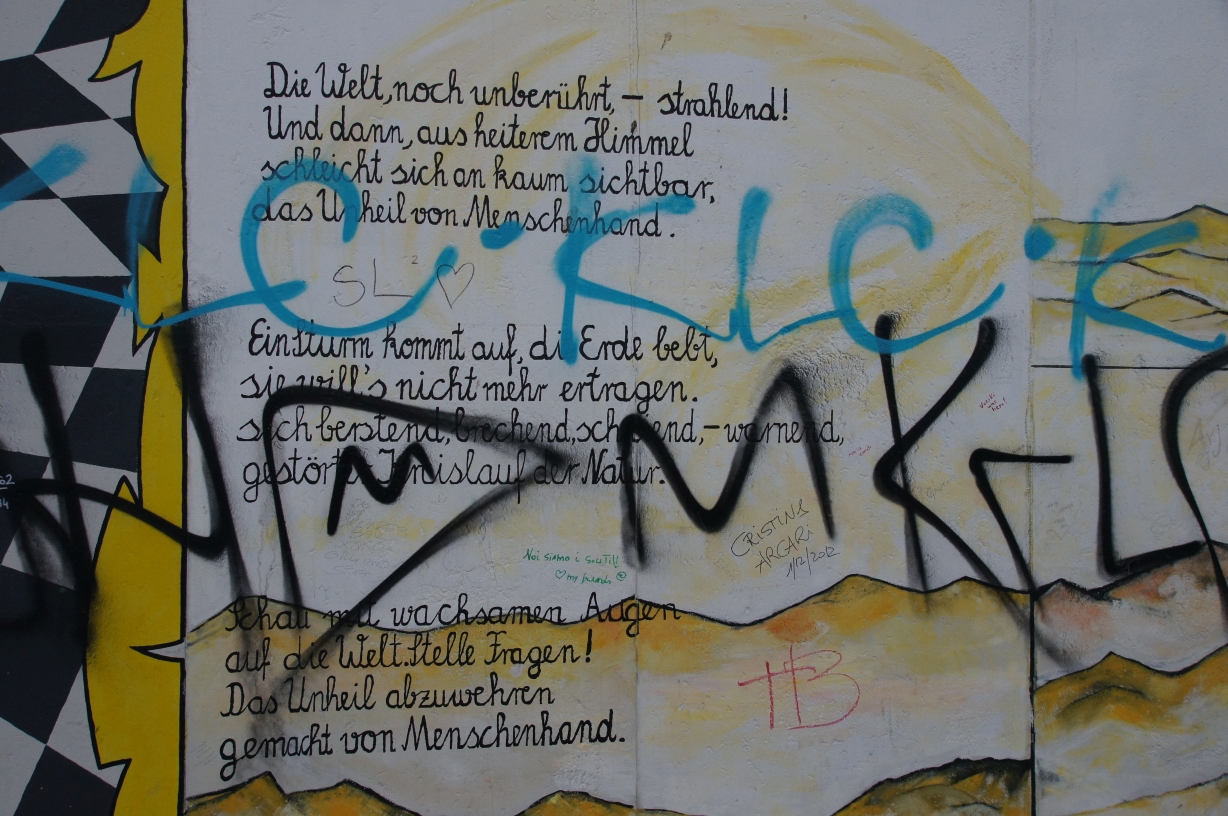 Die Welt, noch unberührt, – strahlend!
Und dann, aus heiterem Himmel
schleicht sich an kaum sichtbar,
das Unheil von Menschenhand.
KLC·KLC·K
SL² ♡
Ein Sturm kommt auf, die Erde bebt,
sie will's nicht mehr ertragen.
sich berstend, brechend, – warnend,
gestörter Kreislauf der Natur.
CRISTINA
ARCARI
1/12/2012
Noi siamo i
♡ my friends
Schau mit wachsamen Augen
auf die Welt. Stelle Fragen!
Das Unheil abzuwehren
gemacht von Menschenhand.
HB